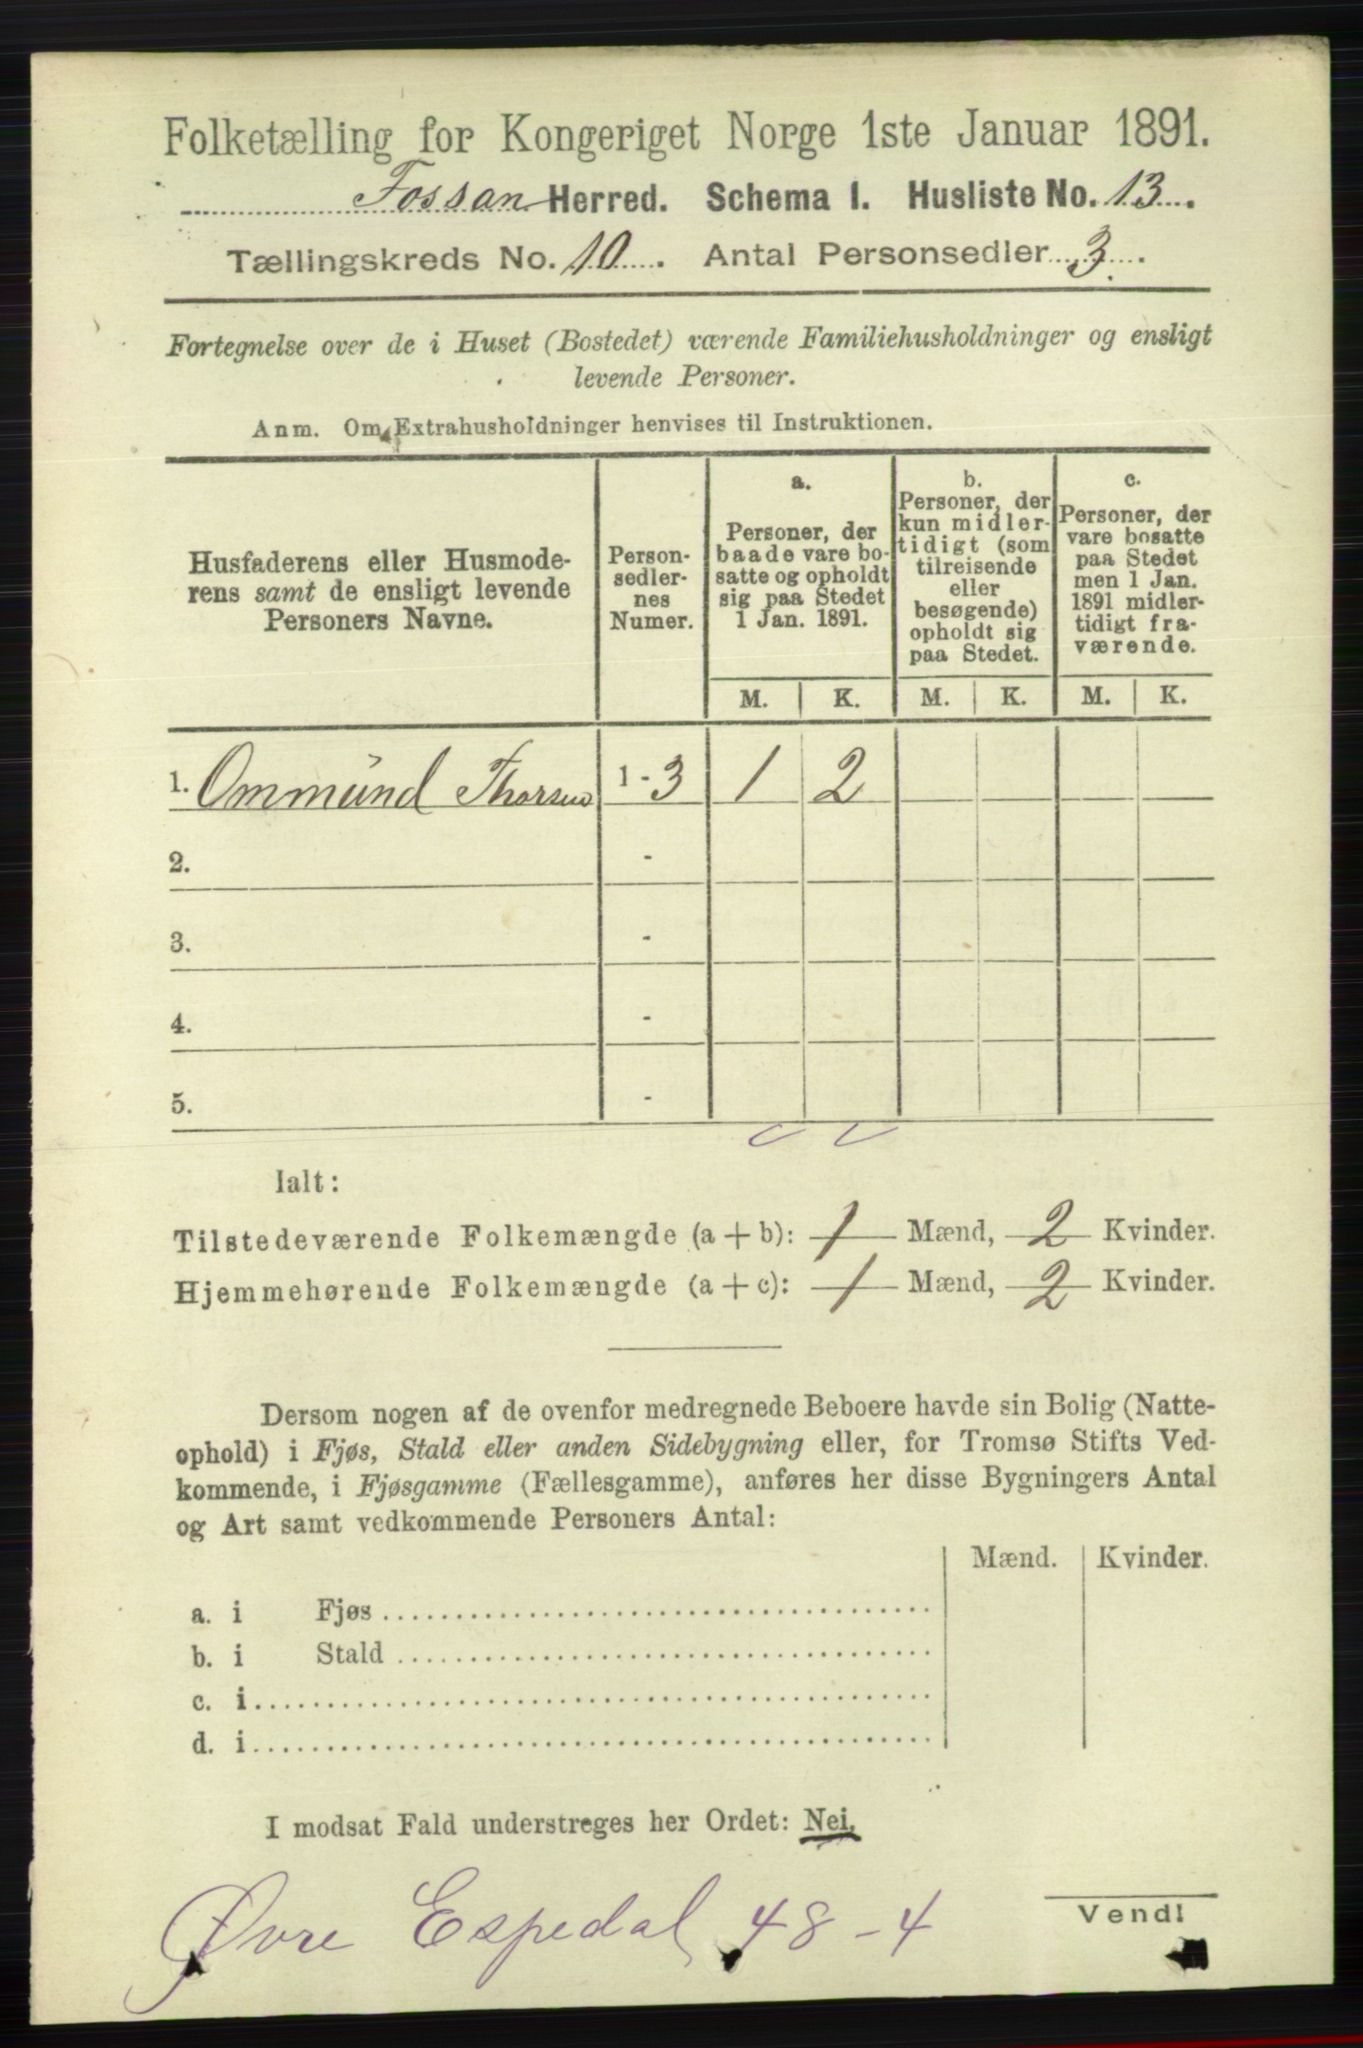 Folketælling for Kongeriget Norge 1ste Januar 1891.
Fossan Herred. Schema I. Husliste No. 13.
Tællingskreds No. 10. Antal Personsedler 3.
Fortegnelse over de i Huset (Bostedet) værende Familiehusholdninger og ensligt
levende Personer.
Anm. Om Extrahusholdninger henvises til Instruktionen.
Husfaderens eller Husmode-
rens samt de ensligt levende
Personers Navne.
Person-
sedler-
nes
Numer.
a.
Personer, der
baade vare bo-
satte og opholdt
sig paa Stedet
1 Jan. 1891.
b.
Personer, der
kun midler-
tidigt (som
tilreisende
eller
besøgende)
opholdt sig
paa Stedet.
c.
Personer, der
vare bosatte
paa Stedet
men 1 Jan.
1891 midler-
tidigt fra-
værende.
M. K. M. K. M. K.
1. Ommund Thorsen 1 - 3 1 2
2. -
3. -
4. -
5. -
Ialt:
Tilstedeværende Folkemængde (a + b): 1 Mænd, 2 Kvinder.
Hjemmehørende Folkemængde (a + c): 1 Mænd, 2 Kvinder.
Dersom nogen af de ovenfor medregnede Beboere havde sin Bolig (Natte-
ophold) i Fjøs, Stald eller anden Sidebygning eller, for Tromsø Stifts Ved-
kommende, i Fjøsgamme (Fællesgamme), anføres her disse Bygningers Antal
og Art samt vedkommende Personers Antal:
Mænd. Kvinder.
a. i Fjøs
b. i Stald
c. i
d. i
I modsat Fald understreges her Ordet: Nei.
Øvre Espedal 48-4
Vend!